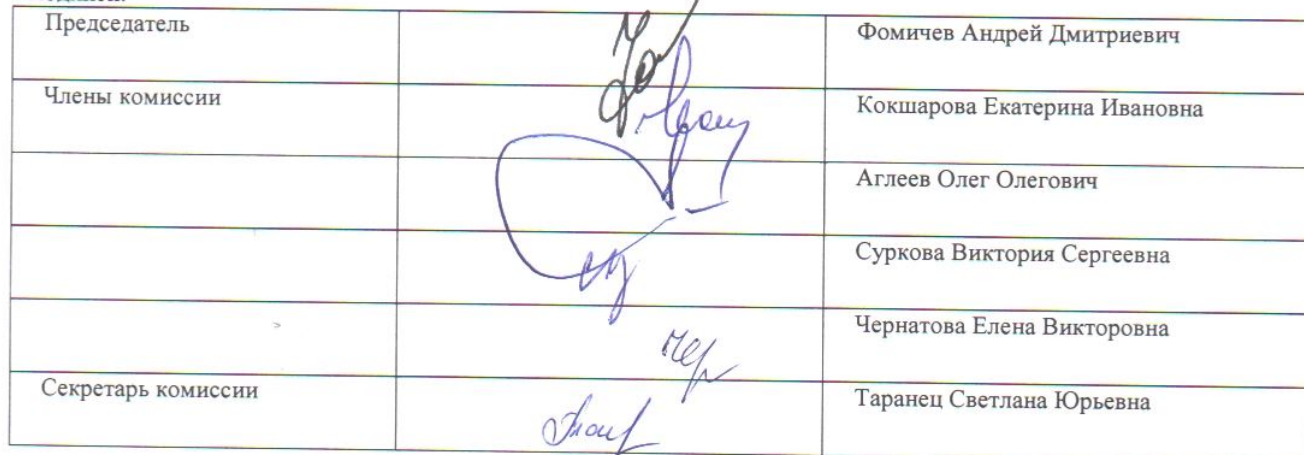 Председатель Фомичев Андрей Дмитриевич
Члены комиссии Кокшарова Екатерина Ивановна
Аглеев Олег Олегович
Суркова Виктория Сергеевна
Чернатова Елена Викторовна
Секретарь комиссии Таранец Светлана Юрьевна